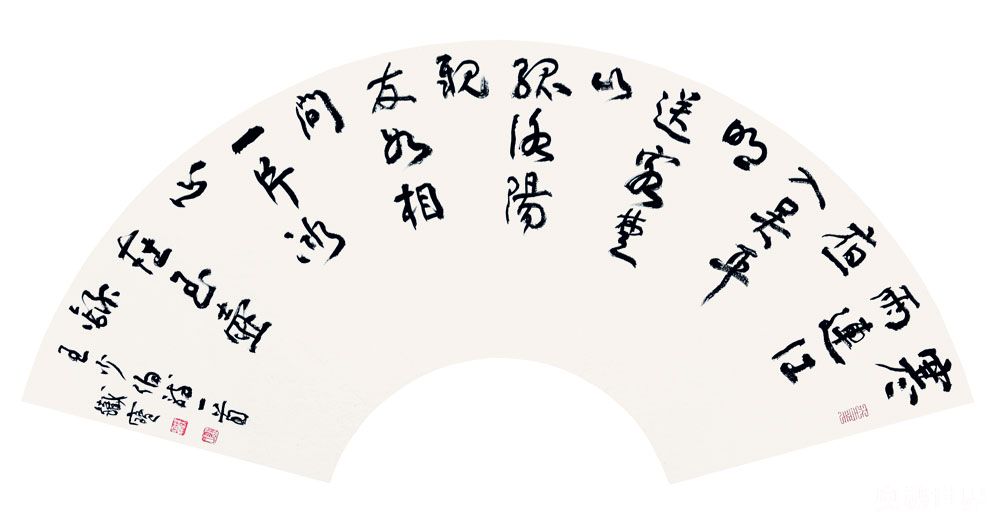 寒
雨連江
夜
入吳平
明
送客楚
山
孤洛陽
親
友如相
問
一片冰
心
在玉壺
錄
王少伯詩一首